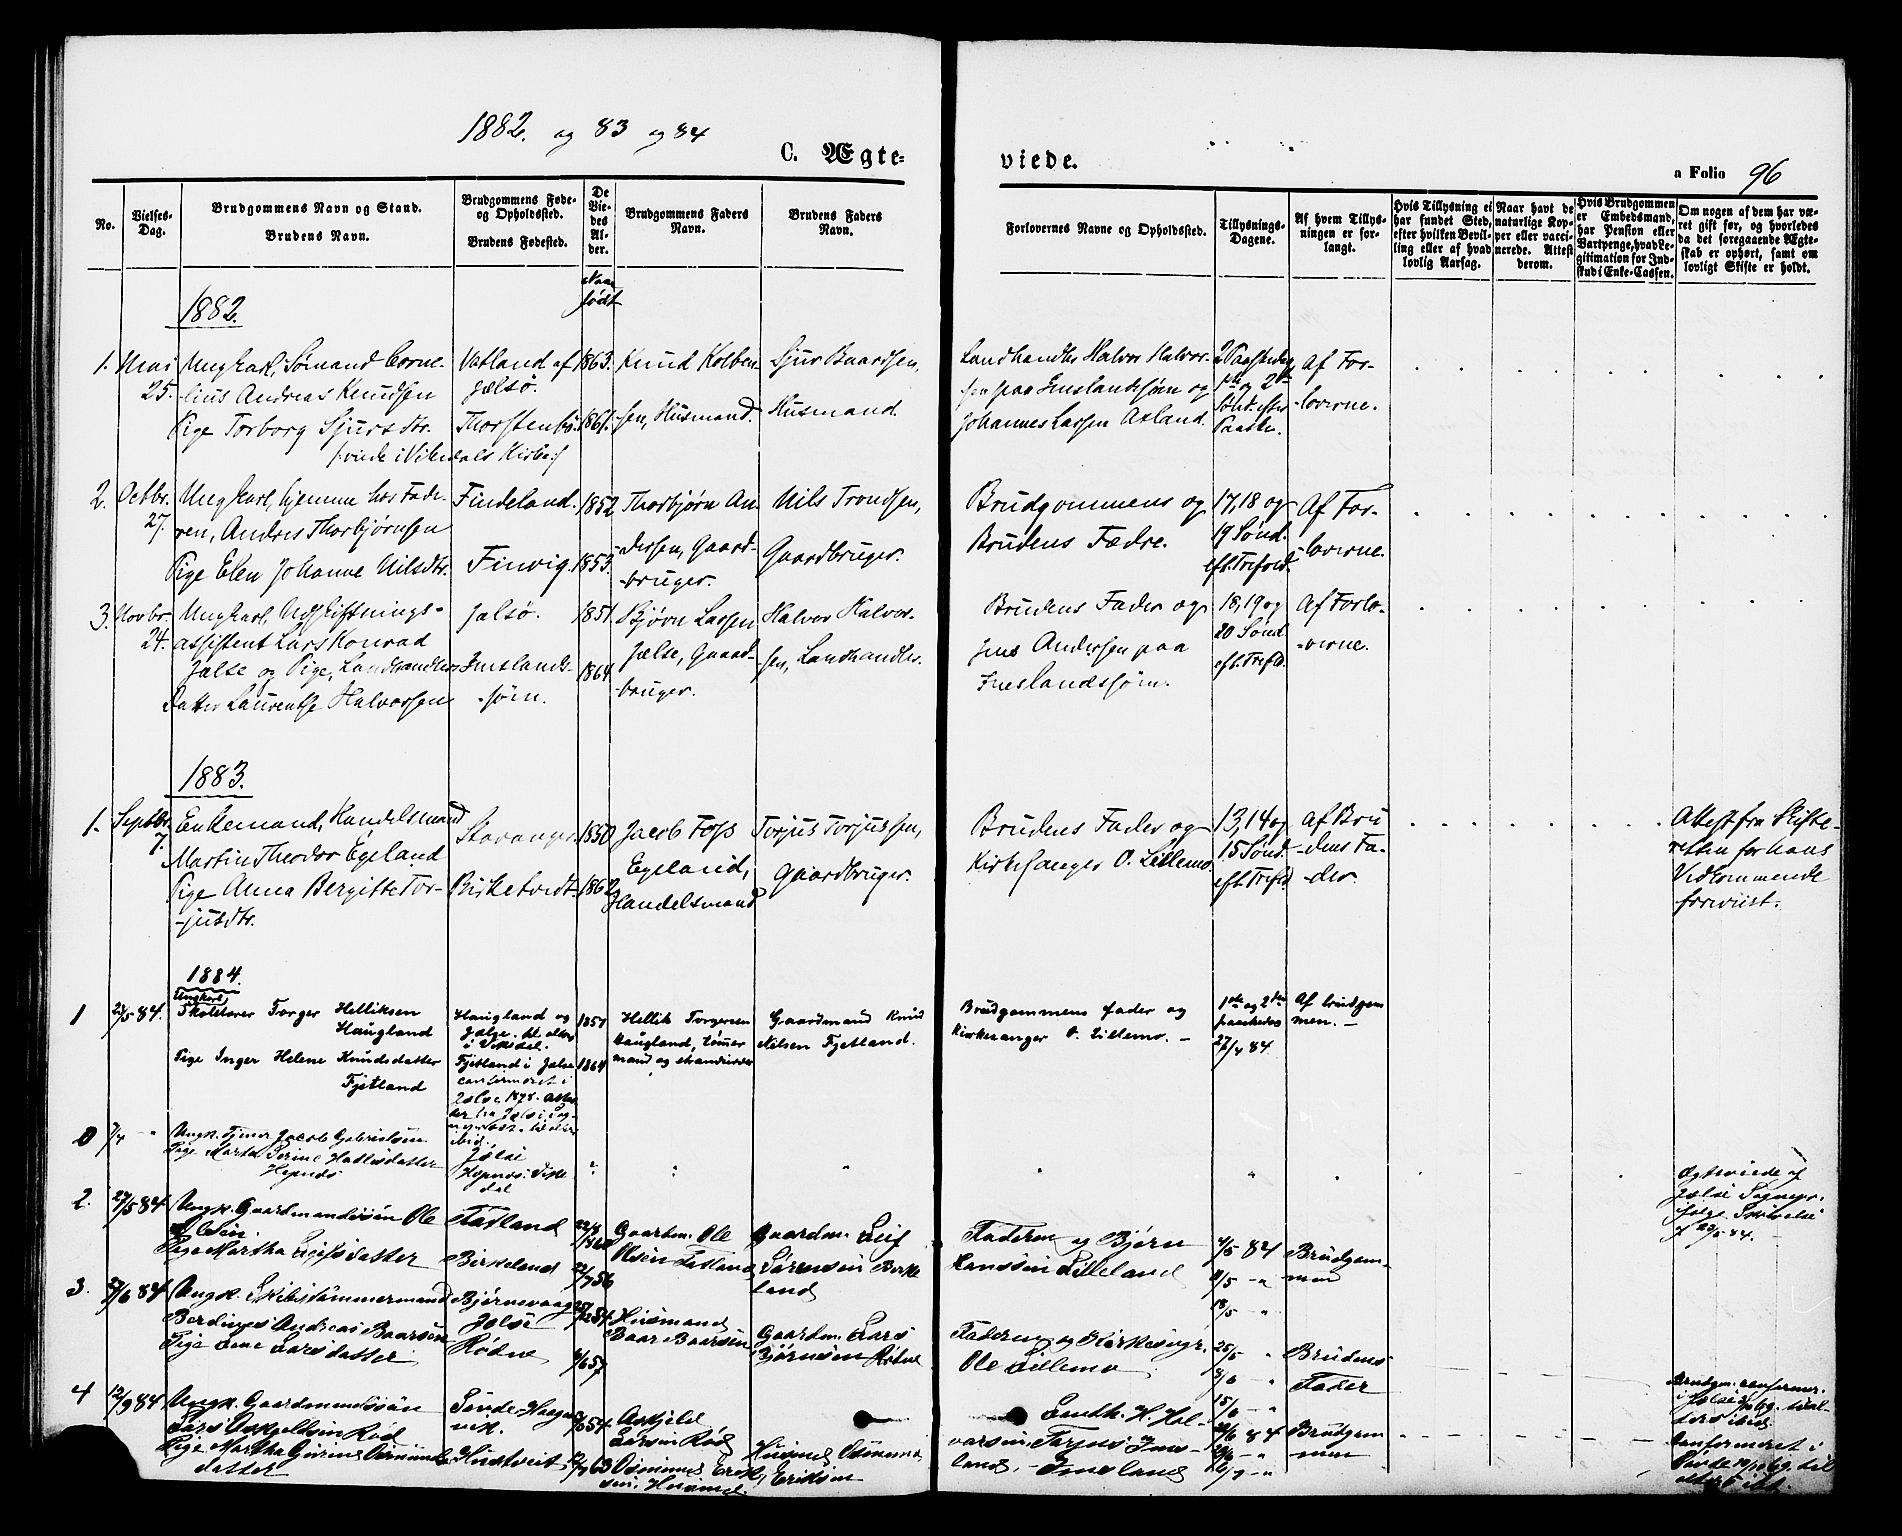 1882. og 83 og 84
C. Ægte-
viede.
a Folio 96
No.
Vielses-Dag.
Brudgommens Navn og Stand.
Brudens Navn.
Brudgommens Føde- og Opholdssted.
Brudens Fødested.
De Viedes Alder.
Brudgommens Faders Navn.
Brudens Faders Navn.
Forlovernes Navne og Opholdssted.
Tillysnings-Dagene.
Af hvem Tillysningen er forlangt.
Hvis Tillysning ei har fundet Sted, efter hvilken Bevilling eller af hvad lovlig Aarsag.
Naar havt de naturlige Kopper eller vaccinerede. Attest derom.
Hvis Brudgommen er Embedsmand, har Pension eller Vartpenge, hvad Legitimation for Indskud i Enke-Cassen.
Om nogen af dem har været gift før, og hvorledes da det foregaaende Ægteskab er ophørt, samt om lovligt Skifte er holdt.
Naar født
1882.
1. Mai 25.
Ungkarl, Sømand Corne-
lius Andreas Knudsen
Pige Torborg Sjursdtr.
Vatland af Jælsø.
1863.
1861.
Knud Kolben-
sen, Husmand.
Sjur Baardsen,
Husmand.
Landhandler Halvor Halvor-
sen paa Imslandssjøen og
Johannes Larsen Axland.
2 Paaskedag
Af For-
loverne.
2. Octbr. 27.
Ungkarl, hjemme hos Fade-
ren, Andreas Thorbjørnsen
Pige Elen Johanne Nilsdtr.
Findeland.
Finvig.
1852
1853.
Thorbjørn An-
dersen, Gaard-
bruger.
Nils Trondsen,
Gaardbruger.
Brudgommens og
Brudens Fædre.
17, 18 og
19 Sønd.
eft. Trefold.
Af For-
loverne.
3. Novbr. 24.
Ungkarl, Udskiftnings-
assistent Lars Konrad
Jælse og Pige, Landhandler
Datter Laurentse Halvorsen
Jælsø.
Imslands-
sjøen.
1851
1864
Bjørn Larsen
Jælse, Gaard-
bruger.
Halvor Halvor-
sen, Landhandler.
Brudens Fader og
Jens Andersen paa
Imslandssjøen.
18, 19 og
20 Sønd.
eft. Trefold.
Af Forlo-
verne.
1883.
1. Septbr. 7.
Enkemand, Handelsmand
Martin Theodor Egeland
Pige Anna Bergitte Tor-
jusdtr.
Stavanger
Birketvedt
1850
1862
Jacob Foss
Egeland,
Handelsmand
Torjus Torjussen,
Gaardbruger.
Brudens Fader og
Kirkesanger O. Lillemo.
13, 14 og
15 Sønd.
eft. Trefold.
Af Bru
dens Fa-
der.
Attest fra Skifte-
retten for hans
Vedkommende
forevist.
1884.
1
Ungkarl,
Skolelærer Torger Helliksen
Haugland
Pige Inger Helene Knudsdatter
Fjetland
Haugland og
Jælse.
Fjetland i Jælse
confirmeret i
1851
1864
Hellik Torgersen
Haugland, tømmer
mand
Gaardmand Knud
Nilsen Fjetland.
Brudgommens fader og
Kirkesanger O. Lillemo.
1ste og 2den
paaskedag
27/4 84
Af brudgom
men.
0 7/4
Ungk. Tjener Jacob Gabrielsen
Jælse
Ægteviede af
Jælse Sognepr.
ifølge Skrivelse
2. 27/5 84
Ungk. Gaardmandssøn Ole
Olsen.
Pige Martha Leifsdatter
Tatland
Birkeland
Gaardm. Ole
Olsen Tatland
Gaardm. Leif
Sørensen Birke
land
Faderen og Bjørn
Hansen Lilleland
4/5 84
11/5
18/5
Brudgom-
men
3. 27/6 84
Ungk. Skibstømmermand
Berdines Andreas Baarsen
Pige Lene Larsdatter
Bjørnevaag
Jælse
Rødne
Husmand
Baar Baarsen
Gaardm. Lars
Bjørnsen Rødne
Faderen og Kirkesngr.
Ole Lillemo
25/5
8/6
15/6
Brudens
Fader
4 12/9 84
Ungk. Gaardmandssøn
Lars Askjeldsen Rød
Hundtveit
Askjeld
Larsen Rød
Landh. H. Hal-
varsen.
84
Brudgom
men
Brudgm. confirmer.
confirmeret i